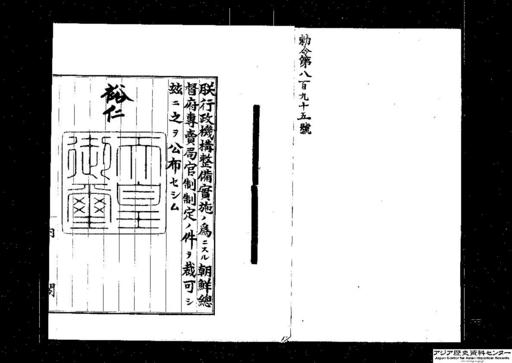 勅令第八百九十五號
朕行政機構整備實施ノ爲ニスル朝鮮總
督府專賣局官制制定ノ件ヲ裁可シ
玆ニ之ヲ公布セシム
裕仁
天皇
御璽
内閣
アジア歴史資料センター
Japan Center for Asian Historical Records